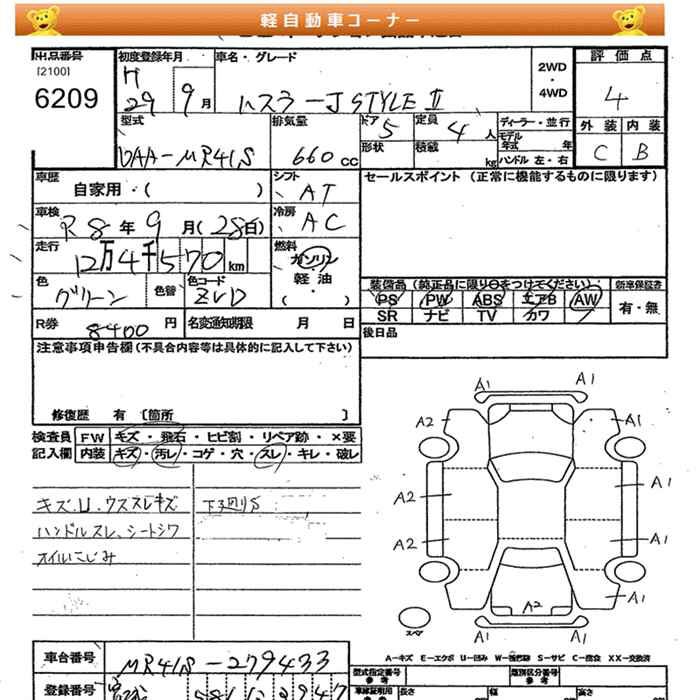 軽自動車コーナー
出品番号
[2100]
6209
初度登録年月
H
29 9月
車名・グレード
ハスラーJ STYLE Ⅱ
2WD
・
4WD
評価点
4
外装 内装
C B
型式
DAA-MR41S
排気量
660 cc
ドア 5
形状
定員 4 人
積載 kg
ディーラー・並行
モデル
年式 年
ハンドル 左・右
車歴
自家用・( )
シフト
AT
車検
R8年9月(28日)
冷房
AC
走行
12万4千570 km
燃料
ガソリン
軽油
・( )
色
グリーン
色替
色コード
ZVD
R券 8400 円
名変通知期限 月 日
セールスポイント (正常に機能するものに限ります)
装備品(純正品に限り○をつけてください)
PS PW ABS エアB AW
SR ナビ TV カワ
新車保証書
有・無
後日品
注意事項申告欄(不具合内容等は具体的に記入して下さい)
修復歴 有 [箇所 ]
検査員
記入欄
FW キズ・飛石・ヒビ割・リペア跡・×要
内装 キズ・汚レ・コゲ・穴・スレ・キレ・破レ
キズ.U.ウススレキズ
下廻りS
ハンドルスレ、シートシワ
オイルにじみ
A1 A1
A2 A1
A2 A1
A2 A1
A2 A1
スペア
A1 A1
A-キズ E-エクボ U-凹み W-補修跡 S-サビ C-腐食 XX-交換済
車台番号
MR41S-279433
登録番号
型式指定番号
類別区分番号
参考
長さ
幅
高さ